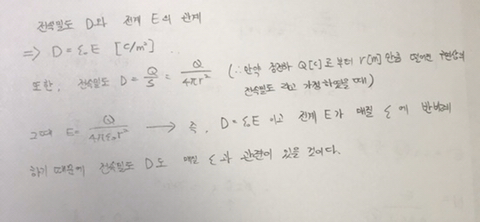 전속밀도 D와 전계 E의 관계
=> D = ε₀E [C/m²]
또한, 전속밀도 D = Q/S = Q/4πr² (∴ 만약 점전하 Q[c]로부터 r[m] 만큼 떨어진
전속밀도 라고 가정하였을 때)
그때 E = Q/4πε₀r² → 즉, D = ε₀E 이고 전계 E가 매질 ε에 반비례
하기 때문에 전속밀도 D도 매질 ε과 관련이 있을 것이다.